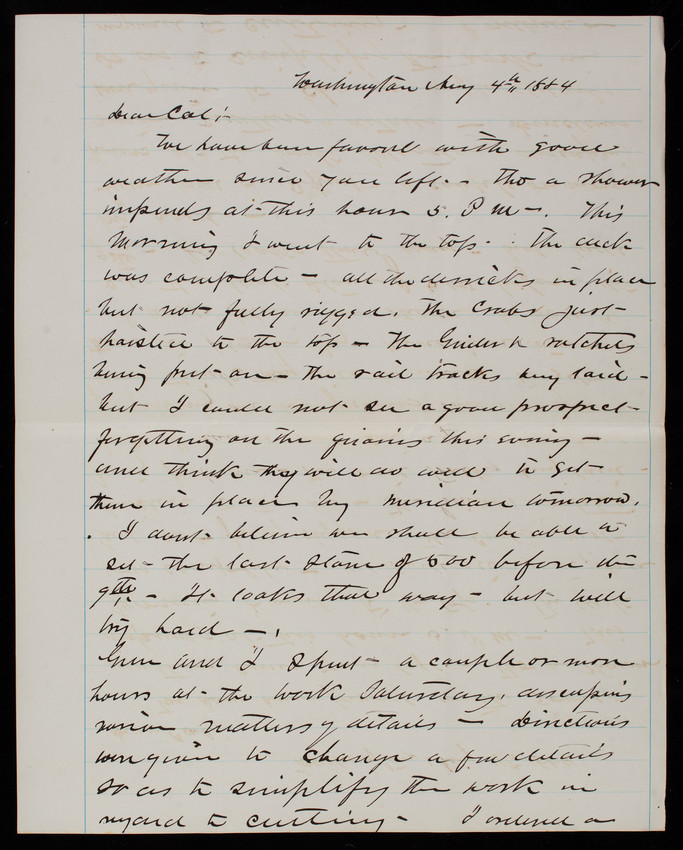 Washington Aug 4th 1884
Dear Col:-
We have been favored with good
weather since you left - Tho a shower
impends at this hour 5. P M -. This
morning I went to the top. The deck
was complete - all the derricks in place
but not fully rigged. The Crabs just
hoisted to the top - The Guides & ratchets
being put on - the rail tracks being laid -
but I could not see a good prospect
for getting on the this evening -
and think they will do well to get
them in place by meridian tomorrow.
I dont believe we shall be able to
set the last stone of 500 before the
9th. - It looks that way - but will
try hard -.
Green and I spent a couple or more
hours at the work Saturday, discussing
various matters of details - Directions
were given to change a few details
so as to simplify the work in
regard to cutting - I ordered a